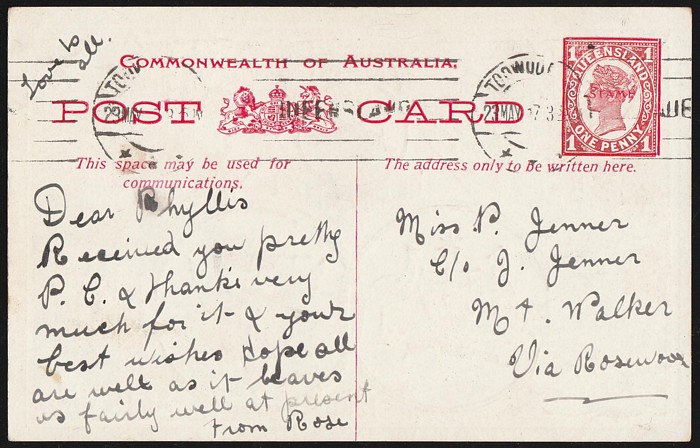 Love to
all.
COMMONWEALTH OF AUSTRALIA.
POST CARD
QUEENSLAND
STAMP
1 1
ONE PENNY
1 1
23 MAY
QUEENSLAND
23 MAY
This space may be used for
communications.
The address only to be written here.
Dear Phyllis
Received you pretty
P. C. & thanks very
much for it & your
best wishes Hope all
are well as it leaves
us fairly well at present
From Rose
Miss P. Jenner
C/o J. Jenner
Mt. Walker
Via Rosewood